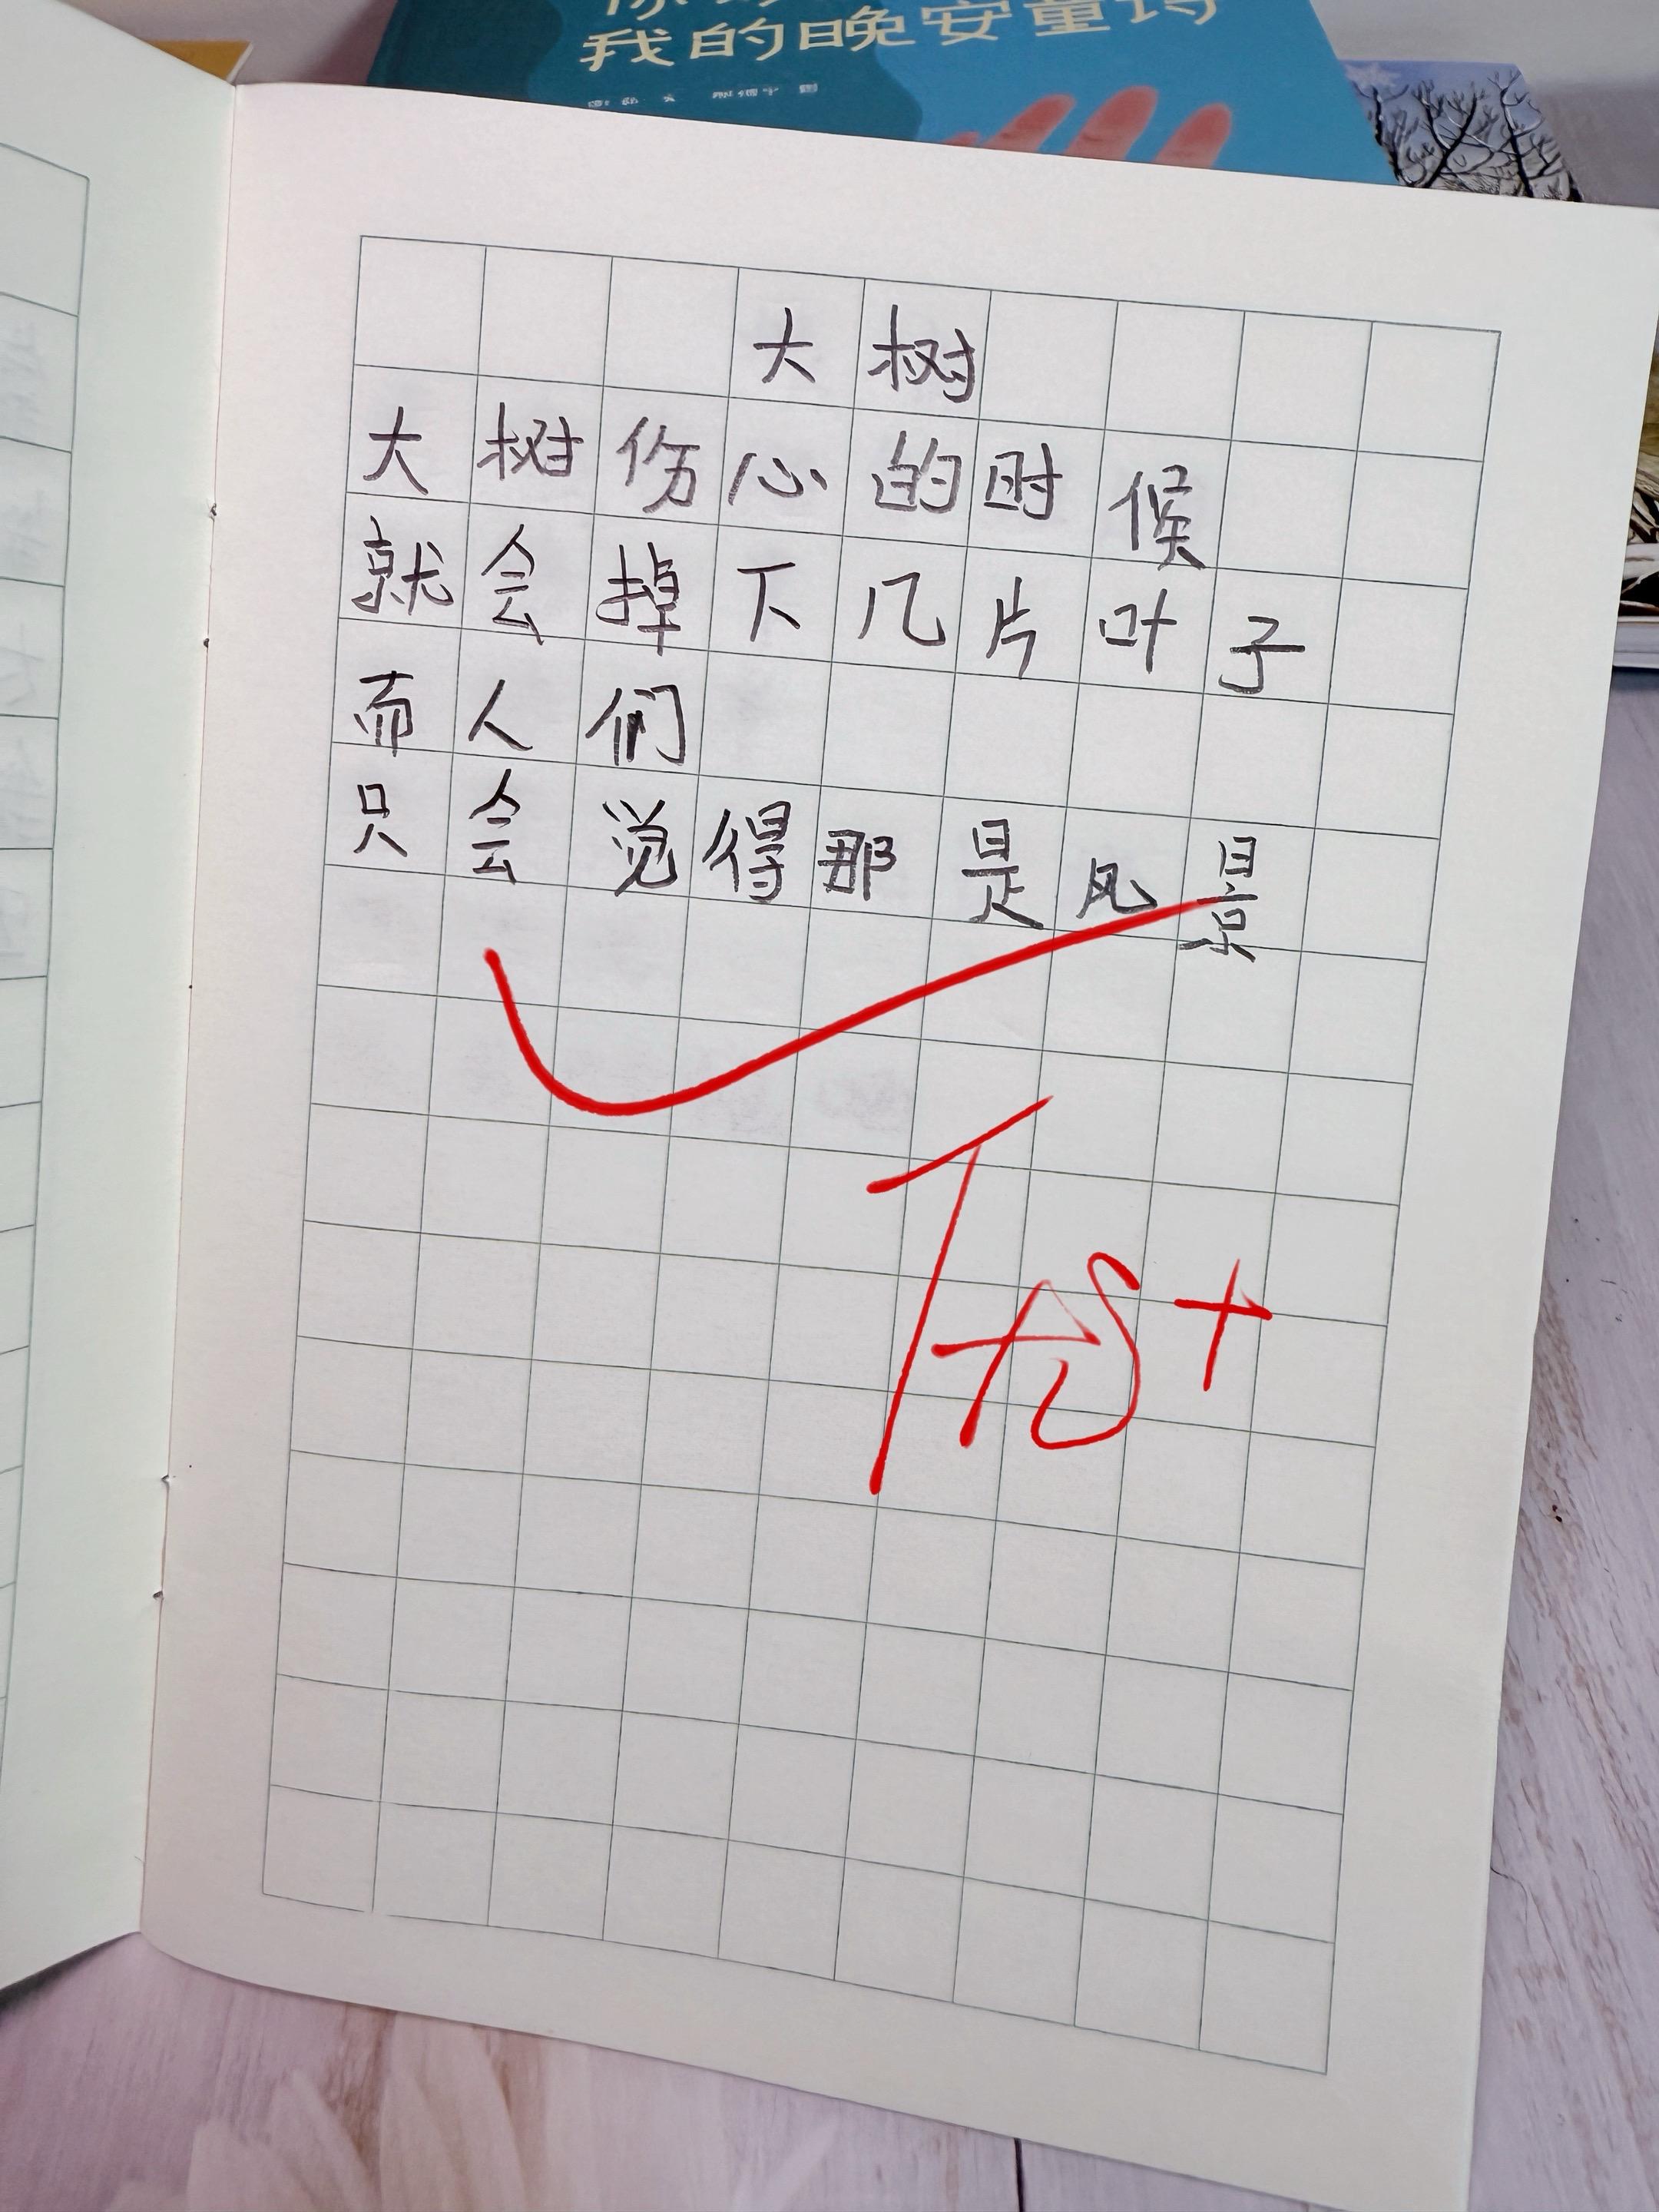 我的晚安童诗
大树
大树伤心的时候
就会掉下几片叶子
而人们
只会觉得那是风景
优+